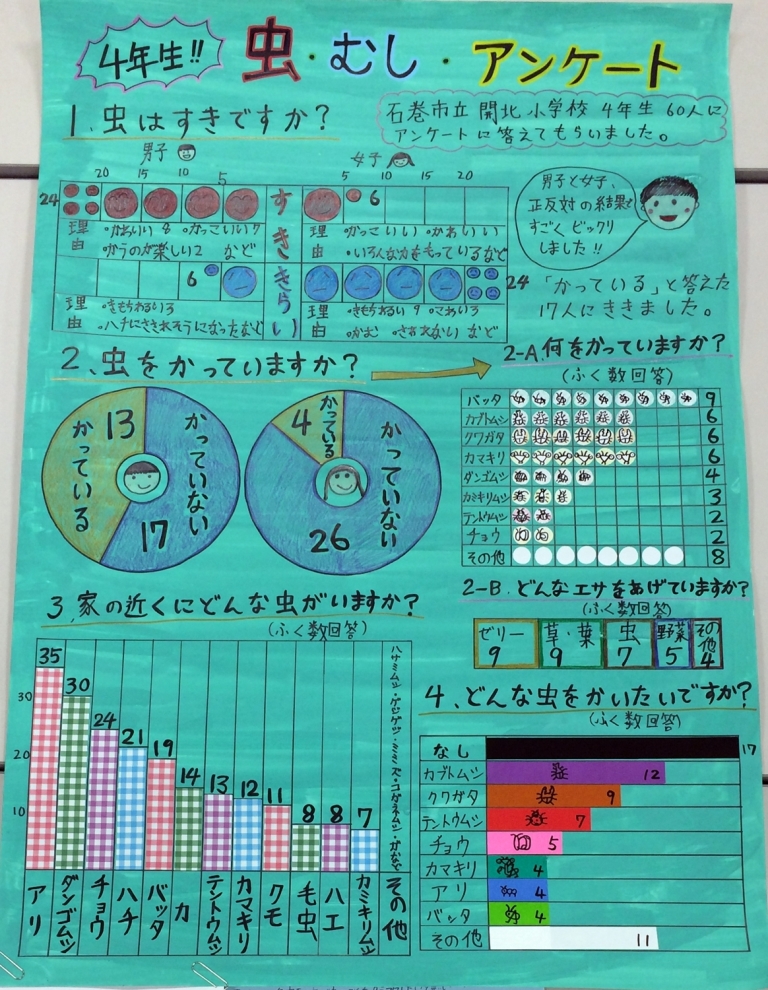 4年生!!
虫・むし・アンケート
石巻市立 開北小学校 4年生 60人に
アンケートに答えてもらいました。
1、虫はすきですか?
男子
女子
20 15 10 5
5 10 15 20
24
すき
6
理由
・かわいい8 ・かっこいい7
・かうのが楽しい2 など
理由
・かっこいい ・かわいい
・いろんな力をもっているなど
6
きらい
24
理由
・きもちわるい3
・ハチにさされそうになったなど
理由
・きもちわるい9 ・こわい3
・かむ ・さわれない など
男子と女子、
正反対の結果で
すごくビックリ
しました!!
「かっている」と答えた
17人にききました。
2、虫をかっていますか?
13
かっている
かっていない
17
4
かっている
かっていない
26
2-A.何をかっていますか?
(ふく数回答)
バッタ 9
カブトムシ 6
クワガタ 6
カマキリ 6
ダンゴムシ 4
カミキリムシ 3
テントウムシ 2
チョウ 2
その他 8
2-B.どんなエサをあげていますか?
(ふく数回答)
ゼリー 9
草・葉 9
虫 7
野菜 5
その他 4
3、家の近くにどんな虫がいますか?
(ふく数回答)
30
20
10
35 30 24 21 19 14 13 12 11 8 8 7
アリ
ダンゴムシ
チョウ
ハチ
バッタ
カ
テントウムシ
カマキリ
クモ
毛虫
ハエ
カミキリムシ
その他
ハサミムシ・ゲジゲジ・ミミズ・コガネムシ・かなど
4、どんな虫をかいたいですか?
(ふく数回答)
なし 17
カブトムシ 12
クワガタ 9
テントウムシ 7
チョウ 5
カマキリ 4
アリ 4
バッタ 4
その他 11